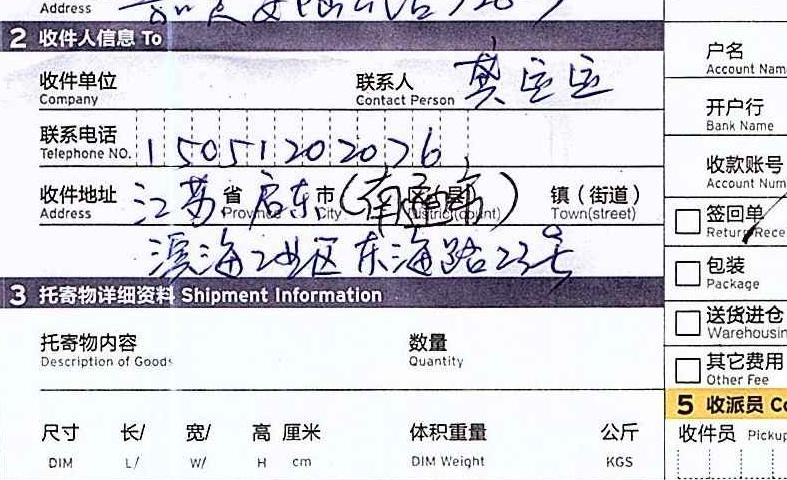 Address
2 收件人信息 To
收件单位 Company
联系人 Contact Person
联系电话 Telephone NO. 15051202076
收件地址 Address 江苏 省 Province 启东 市 City (南通市) 区(县) District(county) 镇（街道） Town(street)
滨海工业区东海路23号
3 托寄物详细资料 Shipment Information
托寄物内容 Description of Goods
数量 Quantity
尺寸 长/ 宽/ 高 厘米 体积重量 公斤
DIM L/ W/ H cm DIM Weight KGS
户名
Account Nam
开户行
Bank Name
收款账号
Account Num
签回单
Return Rece
包装
Package
送货进仓
Warehousin
其它费用
Other Fee
5 收派员 Co
收件员 Pickup